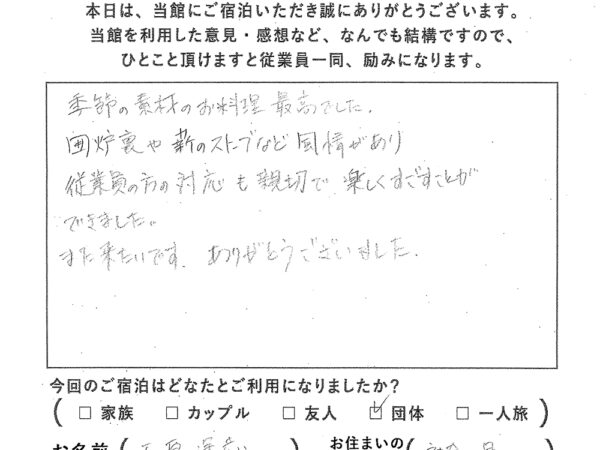 本日は、当館にご宿泊いただき誠にありがとうございます。
当館を利用した意見・感想など、なんでも結構ですので、
ひとこと頂けますと従業員一同、励みになります。
季節の素材のお料理 最高でした.
囲炉裏や薪のストーブなど 風情があり
従業員の方の対応も親切で 楽しくすごすことが
できました。
また来たいです. ありがとうございました.
今回のご宿泊はどなたとご利用になりましたか?
( □ 家族 □ カップル □ 友人 ☑ 団体 □ 一人旅 )
お名前 ( ) お住まいの (